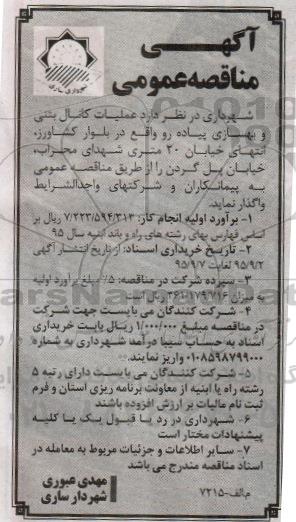 آگهی
مناقصه عمومی
شهرداری ساری
شهرداری در نظر دارد عملیات کانال بتنی
و بهسازی پیاده رو واقع در بلوار کشاورز،
انتهای خیابان ۲۰ متری شهدای محراب،
خیابان پل گردن را از طریق مناقصه عمومی
به پیمانکاران و شرکتهای واجدالشرایط
واگذار نماید.
۱- برآورد اولیه انجام کار: ۷/۲۲۳/۵۹۴/۳۱۳ ریال بر
اساس فهارس بهای رشته های راه و باند ابنیه سال ۹۵
۲- تاریخ خریداری اسناد: از تاریخ انتشار آگهی
۹۵/۹/۲ لغایت ۹۵/۹/۷
۳- سپرده شرکت در مناقصه: ۵٪ مبلغ برآورد اولیه
به میزان ۳۶۱/۱۷۹/۷۱۶ ریال است
۴- شرکت کنندگان می بایست جهت شرکت
در مناقصه مبلغ ۱/۰۰۰/۰۰۰ ریال بابت خریداری
اسناد به حساب سیبا درآمد شهرداری به شماره
۰۱۰۸۵۹۸۷۹۹۰۰۰ واریز نمایند.
۵- شرکت کنندگان می بایست دارای رتبه ۵
رشته راه یا ابنیه از معاونت برنامه ریزی استان و فرم
ثبت نام مالیات بر ارزش افزوده باشند
۶- شهرداری در رد یا قبول یک یا کلیه
پیشنهادات مختار است
۷- سایر اطلاعات و جزئیات مربوط به معامله در
اسناد مناقصه مندرج می باشد
مهدی عبوری
شهردار ساری
م.الف-۷۲۱۵